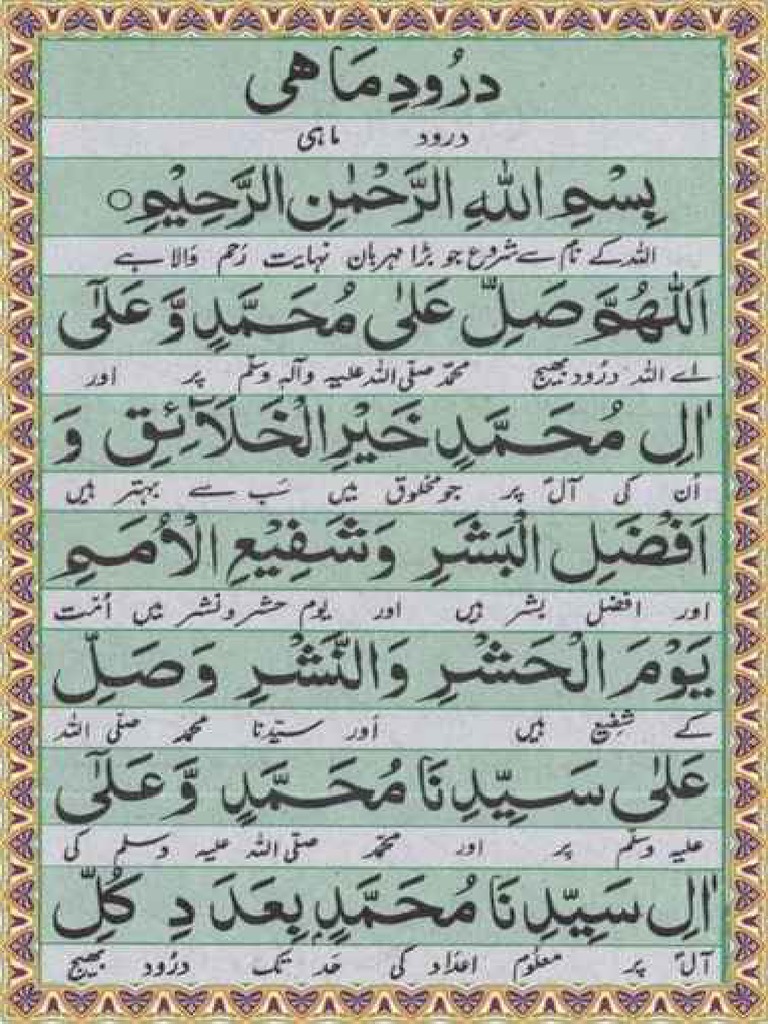 درُودِ مَاهی
درود ماہی
بِسْمِ اللهِ الرَّحْمٰنِ الرَّحِيْمِ○
اللہ کے نام سے شروع جو بڑا مہربان نہایت رَحم وَالا ہے
اَللّٰهُمَّ صَلِّ عَلٰى مُحَمَّدٍ وَّ عَلٰٓى
اے اللہ درُود بھیج محمّد صلّی اللہ علیہ وآلہٖ وسلّم پر اور
اٰلِ مُحَمَّدٍ خَيْرِ الْخَلَآئِقِ وَ
اُن کی آلؑ پر جو مخلوق میں سَب سے بہتر ہیں
اَفْضَلِ الْبَشَرِ وَشَفِيْعِ الْاُمَمِ
اور افضل بشر ہیں اور یوم حشر و نشر میں اُمّت
يَوْمَ الْحَشْرِ وَالنَّشْرِ وَصَلِّ
کے شفیع ہیں اَور سیّدنا محمّد صلّی اللہ
عَلٰى سَيِّدِنَا مُحَمَّدٍ وَّ عَلٰٓى
علیہ وسلّم پر اور محمّد صلّی اللہ علیہ وسلم کی
اٰلِ سَيِّدِنَا مُحَمَّدٍ بِعَدَ دِ كُلِّ
آلؑ پر معلُوم اعدَاد کی حَد تک درُود بھیج